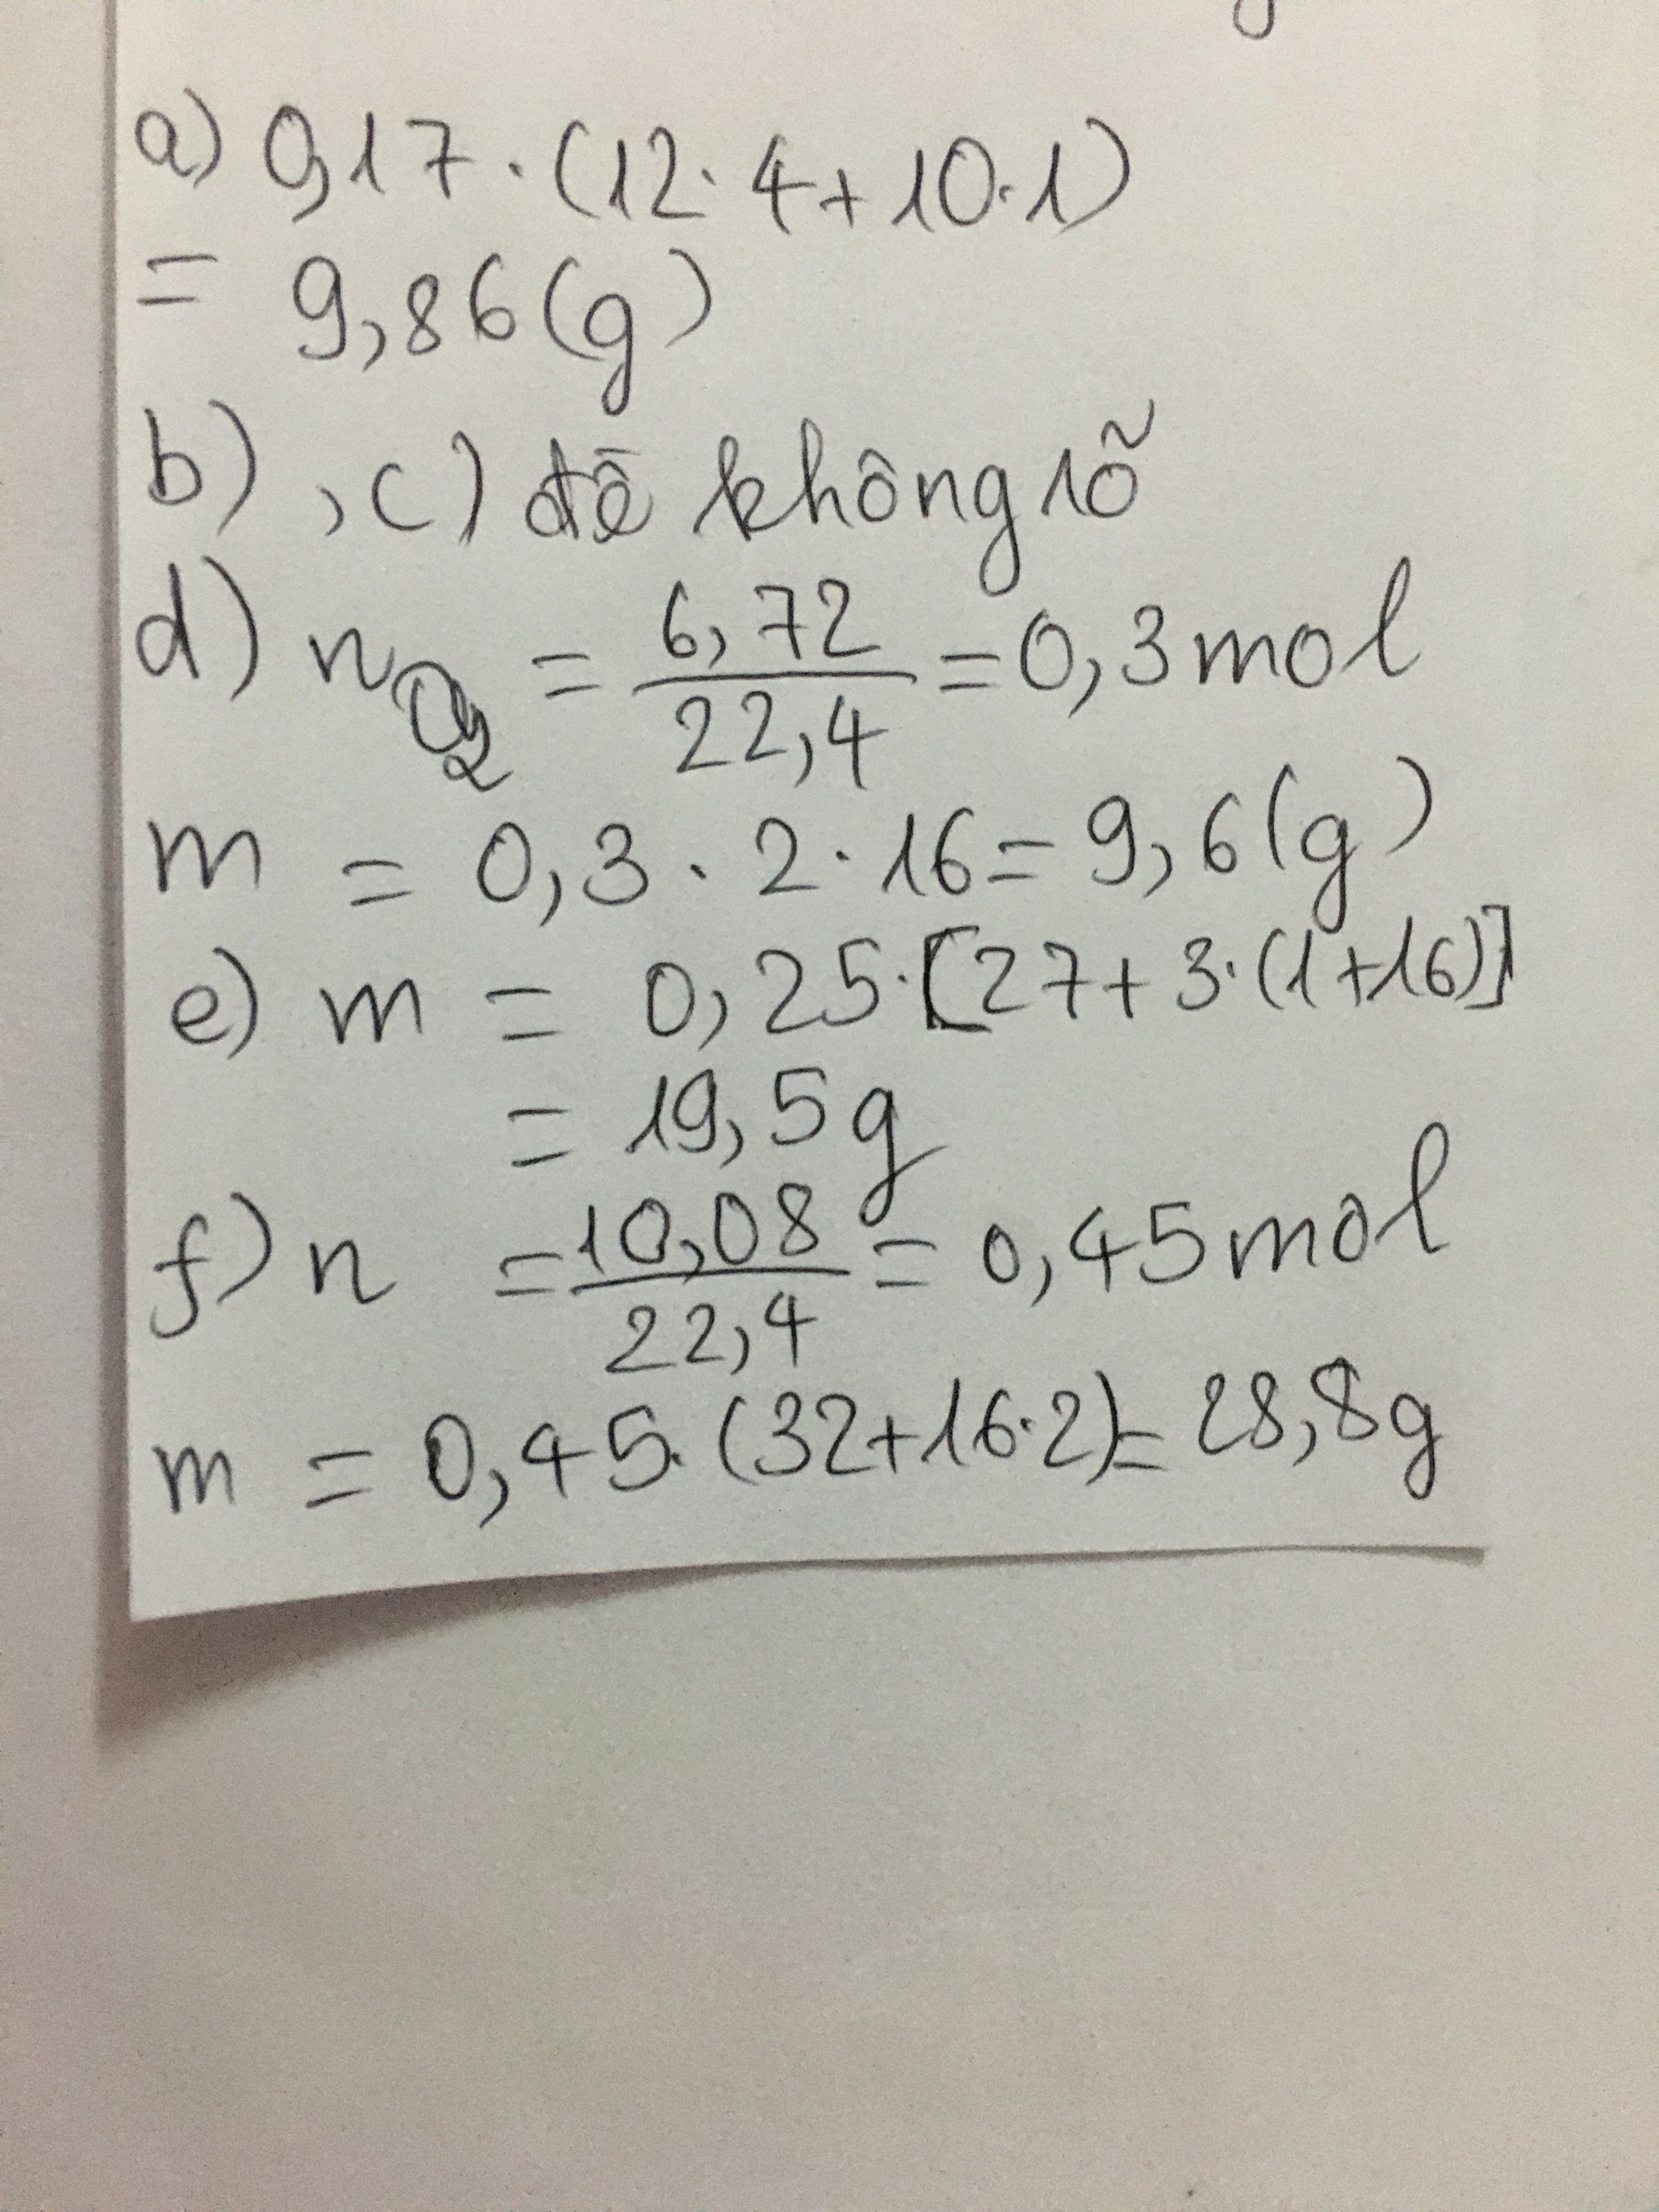 a) 0,17 . (12 . 4 + 10 . 1)
= 9,86 (g)
b) , c) đề không rõ
d) n O2 = 6,72 / 22,4 = 0,3 mol
m = 0,3 . 2 . 16 = 9,6 (g)
e) m = 0,25 . [27 + 3 . (1 + 16)]
= 19,5 g
f) n = 10,08 / 22,4 = 0,45 mol
m = 0,45 . (32 + 16 . 2) = 28,8 g